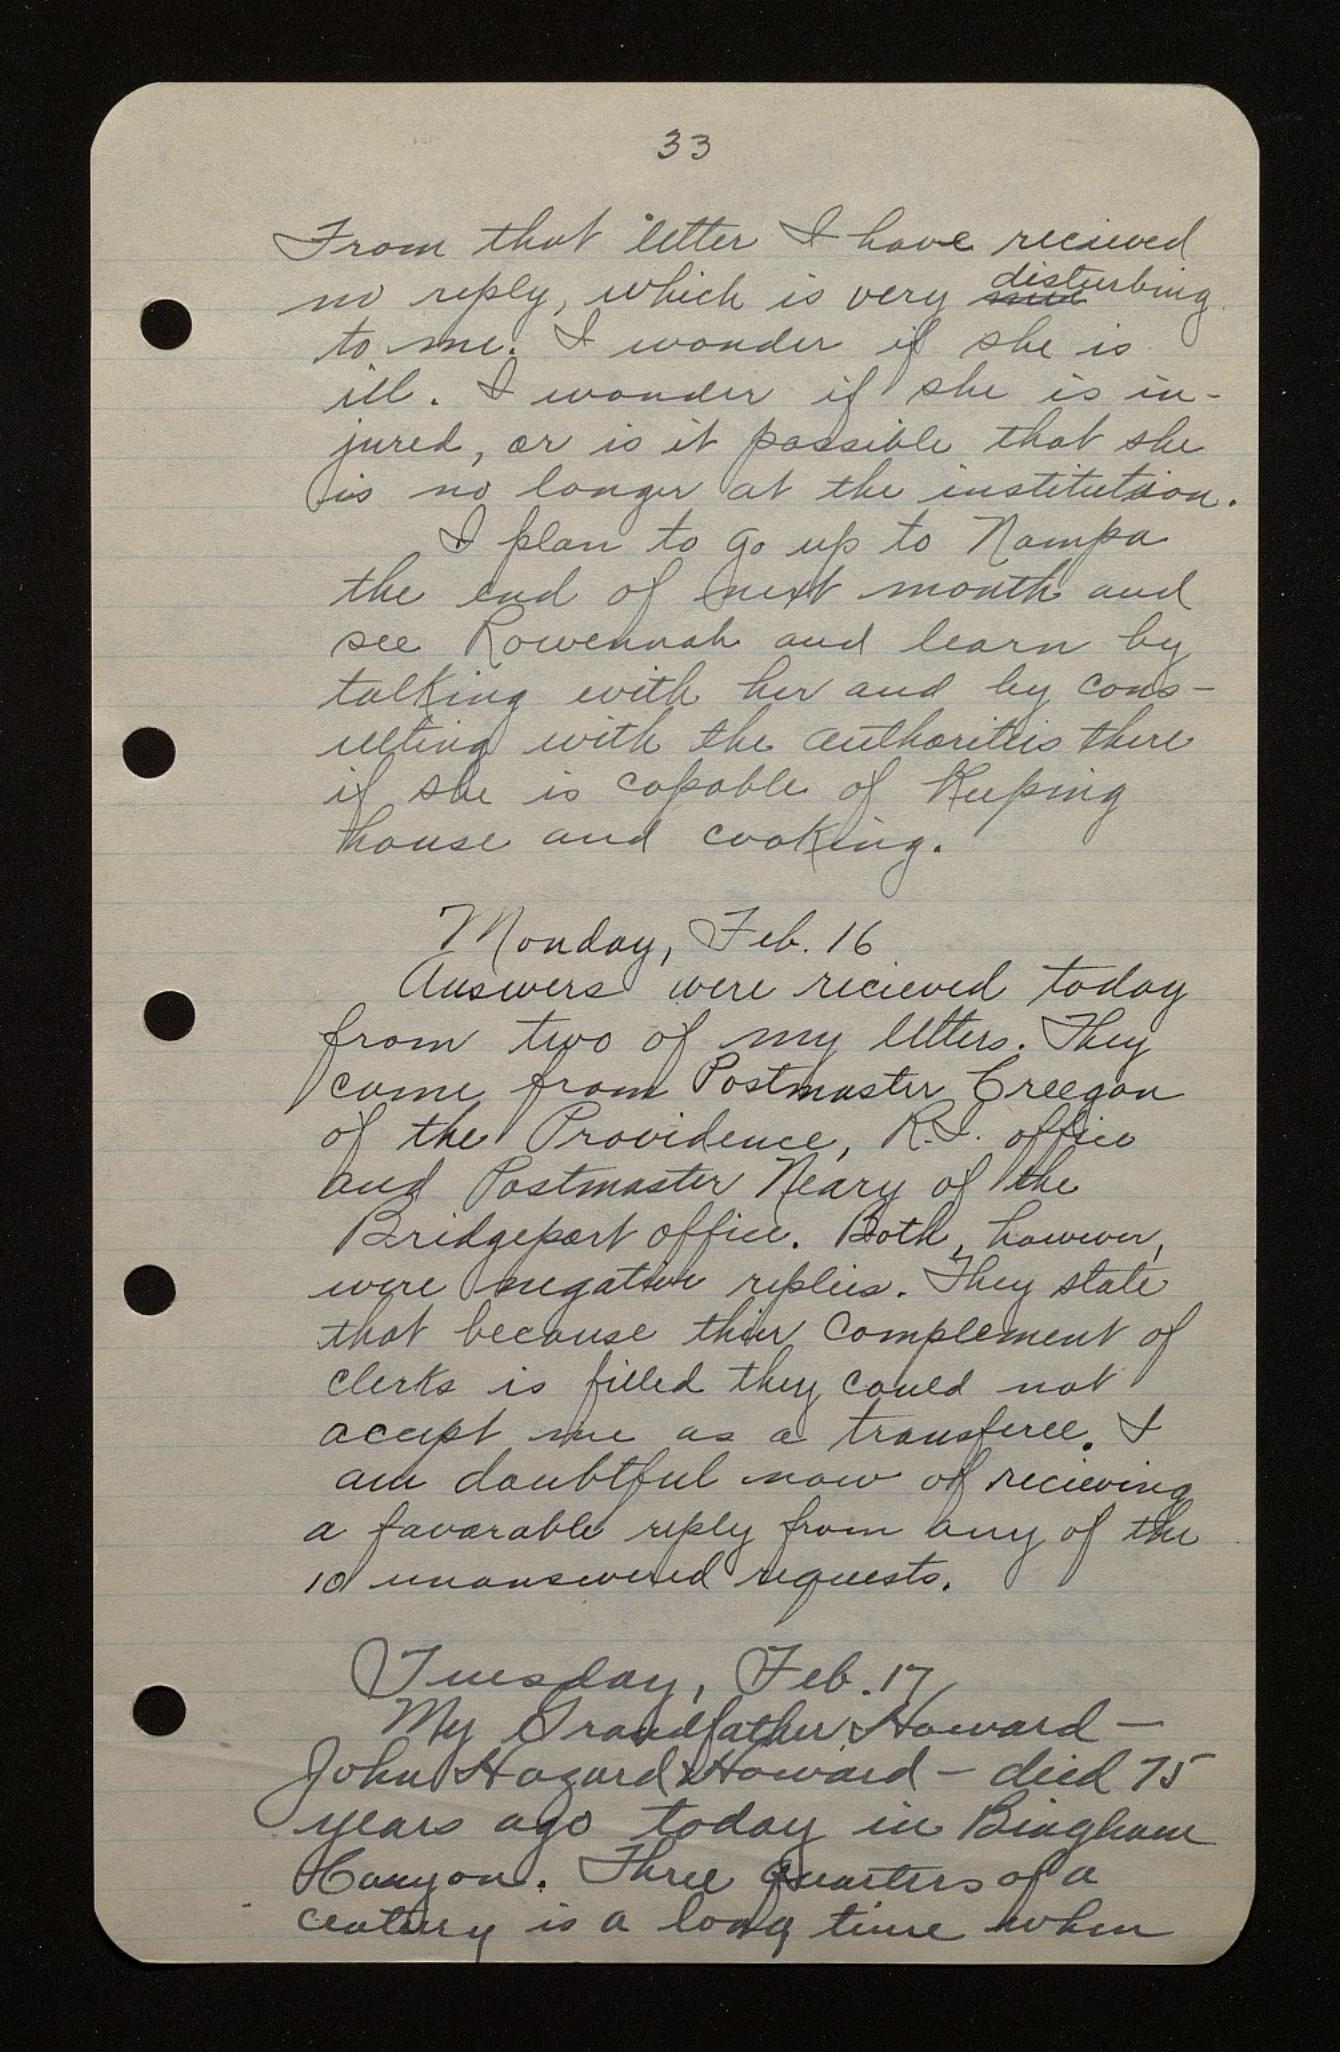 33
From that letter I have recieved
no reply, which is very disturbing
to me. I wonder if she is
ill. I wonder if she is in-
jured, or is it possible that she
is no longer at the institution.
I plan to go up to Nampa
the end of next month and
see Rowennah and learn by
talking with her and by cons-
ulting with the authorities there
if she is capable of Keeping
house and cooking.
Monday, Feb. 16
Answers were recieved today
from two of my letters. They
came from Postmaster Creegan
of the Providence, R.I. office
and Postmaster Neary of the
Bridgeport office. Both, however,
were negative replies. They state
that because thier complement of
clerks is filled they could not
accept me as a transferee. I
am doubtful now of recieving
a favorable reply from any of the
10 unanswered requests.
Tuesday, Feb. 17
My Grandfather Howard -
John Hazard Howard - died 75
years ago today in Bingham
Canyon. Three quarters of a
century is a long time when